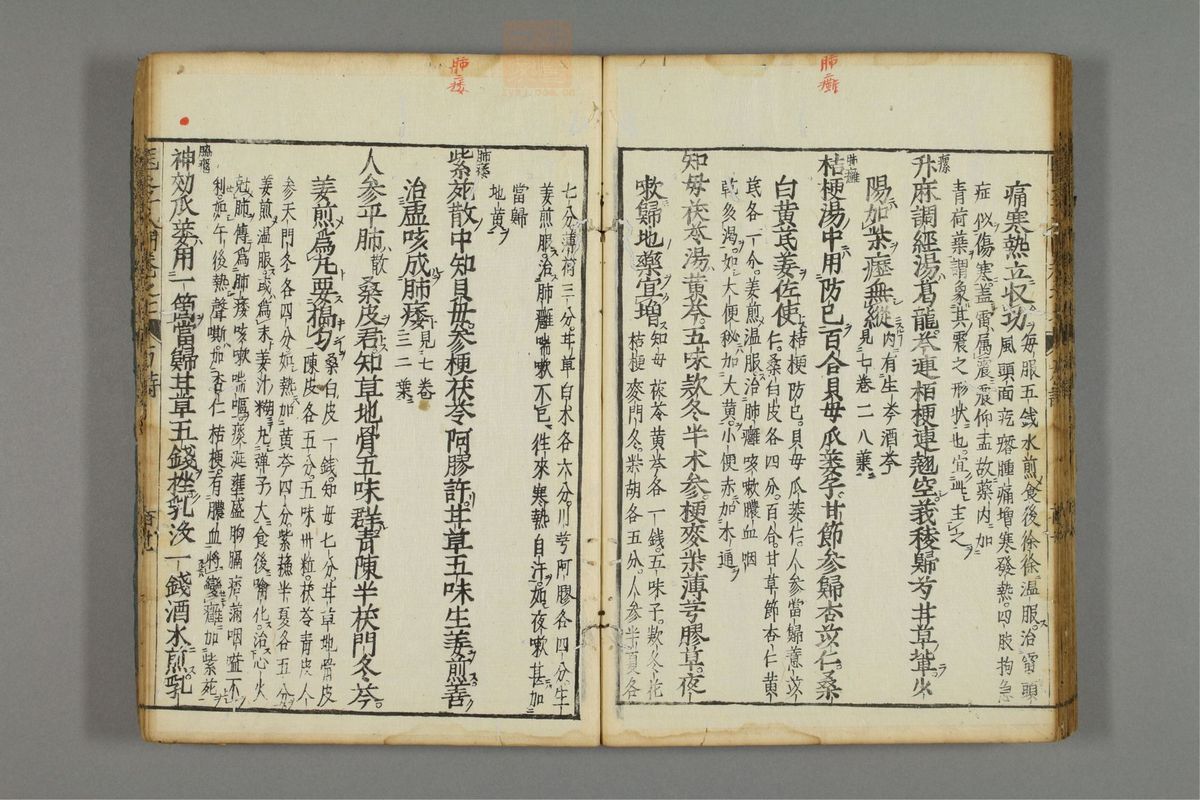 肺癰
痛寒熱立収功
毎服五銭水煎食後徐徐温服治雷頭
症似傷寒盖雷属震震仰盂故薬内加
風頭面疙瘩腫痛増寒發熱四肢拘急
青荷葉謂象其震之形状也宜此主之
瘰
升麻調經湯葛龍芩連栢梗連翹空莪稜歸芍甘草輩少
陽加柴瘧無縱
内有生芩酒芩
見七巻二八葉
肺癰
桔梗湯中用防已百合貝母瓜蔞子甘節參歸杏苡仁桑
白黄芪姜佐使
桔梗防已貝母瓜蔞仁人參當歸薏苡
仁桑白皮各四分百合甘草節杏仁黄
芪各一分姜煎温服治肺癰咳嗽膿血咽
乾多渴如大便秘加大黄小便赤加木通
知母茯苓湯黄芩五味款冬半术參梗麥柴薄芎膠草夜
嗽歸地藥宜増
知母茯苓黄芩各一銭五味子款冬花
桔梗麥門冬柴胡各五分人參半夏各
七分薄荷三分甘草白术各六分川芎阿膠各四分生
姜煎服治肺癰喘嗽不已徃來寒熱自汗如夜嗽甚加
當歸
地黄
肺痿
肺痿
紫菀散中知貝母參梗茯苓阿膠許甘草五味生姜煎善
治虚咳成肺痿
見七巻
三二葉
人參平肺散桑皮君知草地骨五味群青陳半茯門冬芩
姜煎爲丸要搗勻
桑白皮一銭知母七分甘草地骨皮
陳皮各五分五味卅粒茯苓青皮人
參天門冬各四分如熱加黄芩四分紫蘓半夏各五分
姜煎温服或為末姜汁糊丸弾子大食後噙化治心火
尅肺傳爲肺痿咳嗽喘嘔痰涎壅盛胸膈痞滿咽嗌不
利如午後熱聲嘶加杏仁桔梗有膿血將變癰加紫菀
腸癰
神効瓜蔞用一箇當歸甘草五銭挫乳没一銭酒水煎乳